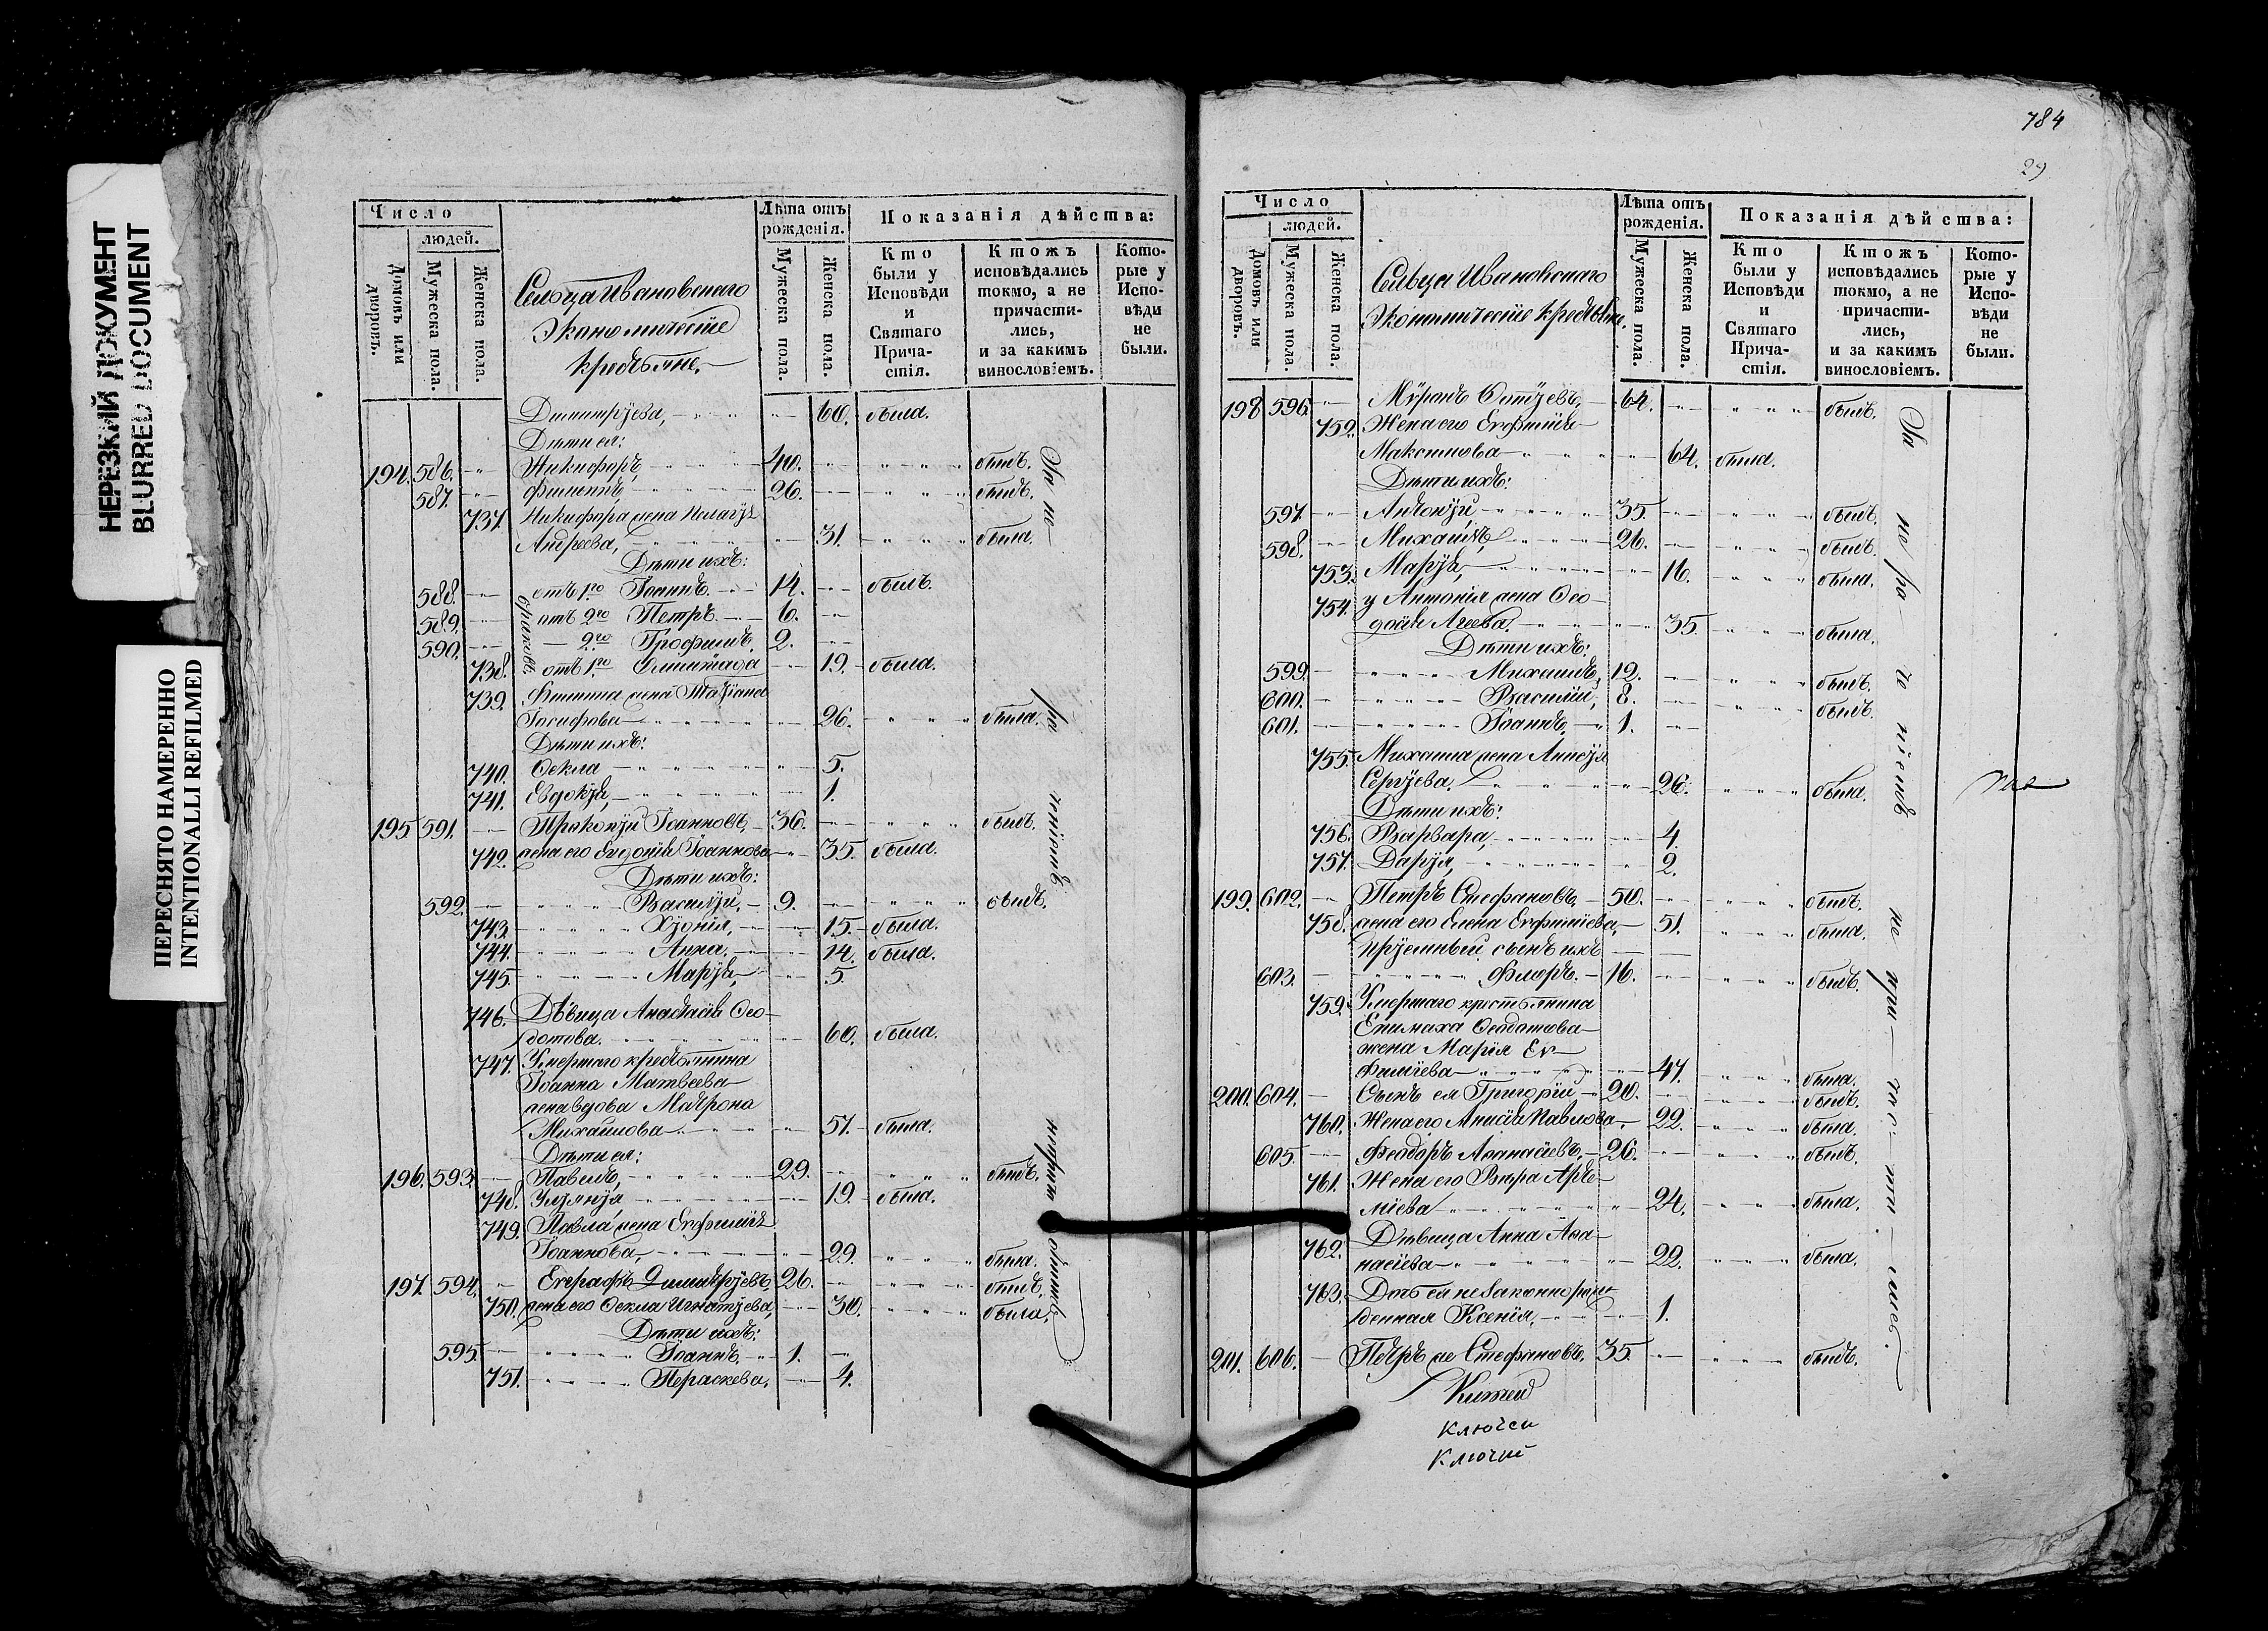 НЕРЕЗКИЙ ДОКУМЕНТ
BLURRED DOCUMENT
ПЕРЕСНЯТО НАМЕРЕННО
INTENTIONALLI REFILMED
Число
людей.
Домовъ или дворовъ.
Мужеска пола.
Женска пола.
Сельца Ивановскаго
Экономическіе
крестьяне.
Лѣта отъ рожденія.
Мужеска пола.
Женска пола.
Показанія дѣйства:
Кто были у Исповѣди и Святаго Причастія.
Ктожъ исповѣдались токмо, а не причастились, и за какимъ винословіемъ.
Которые у Исповѣди не были.
Димитрїева, 60. была.
Дѣти ея:
194. 586. Никифоръ, 40. былъ.
587. Филиппъ, 26. былъ.
737. Никифора жена Пелагїя
Андреева, 31. была.
Дѣти ихъ:
588. отъ 1го Іоаннъ. 14. былъ.
589. отъ 2го Петръ. 6.
590. 2го Трофимъ. 2.
браковъ
738. отъ 1го 19. была.
739. Филиппа жена Татїана
Іосифова 26. была.
Дѣти ихъ:
740. Ѳекла 5.
741. Евдокїя, 1.
195 591. Прокопїй Іоанновъ, 36. былъ.
742. жена его Іоаннова 35. была.
Дѣти ихъ:
592. Василїй, 9. былъ.
743. 15. была.
744. Анна. 14. была.
745. Марїя, 5.
746. Дѣвица Анастасія Ѳео-
дотова. 60. была.
747. Умершаго крестьянина
Іоанна Матвеева
жена вдова Матрона
Михайлова 57. была.
Дѣти ея:
196. 593. Павелъ, 29. былъ.
748. 19. была.
749. Павла жена Евфимїя
Іоаннова, 29. была.
197. 594. Евграфъ Димитрїевъ, 26. былъ.
750. жена его Ѳекла Игнатїева, 30. была.
Дѣти ихъ:
595. Іоаннъ. 1.
751. Параскева, 4.
За не-
ра
ченіемъ
784
29
Число
людей.
Домовъ или дворовъ.
Мужеска пола.
Женска пола.
Сельца Ивановскаго
Экономическіе крестьяне.
Лѣта отъ рожденія.
Мужеска пола.
Женска пола.
Показанія дѣйства:
Кто были у Исповѣди и Святаго Причастія.
Ктожъ исповѣдались токмо, а не причастились, и за какимъ винословіемъ.
Которые у Исповѣди не были.
198 596. 64. былъ.
752. Жена его Евфимія
Максимова 64. была.
Дѣти ихъ:
597. Антонїй 35. былъ.
598. Михаилъ, 26. былъ.
753. Марїя, 16. была.
754. у Антонія жена Ѳео-
досія Агеева. 35. была.
Дѣти ихъ:
599. Михаилъ, 12. былъ.
600. Василій, 8. былъ.
601. Іоаннъ, 1.
755. Михаила жена Анисїя
Сергїева. 26. была.
Дѣти ихъ:
756. Варвара, 4.
757. Дарїя, 2.
199. 602. Петръ Стефановъ, 50. былъ.
758. жена его Елена Евфимїева, 51. была.
Прїемный сынъ ихъ
603. Флоръ. 16. былъ.
759. Умершаго крестьянина
Епимаха Ѳеодотова
жена Марія Ев-
фимїева 47. была.
200. 604. Сынъ ея Григорій, 20. былъ.
760. Жена его Анисія Павлова, 22. была.
605. Ѳеодоръ Аѳанасіевъ, 26. былъ.
761. Жена его Вѣра Арте-
міева 24. была.
762. Дѣвица Анна Аѳа-
насіева 22. была.
763. Дочь ея незаконнорож-
денная Ксенія, 1.
201. 606. Петръ же Стефановъ, 35. былъ.
За не ра че ніемъ не при час ти лись.
Ключей
Ключи